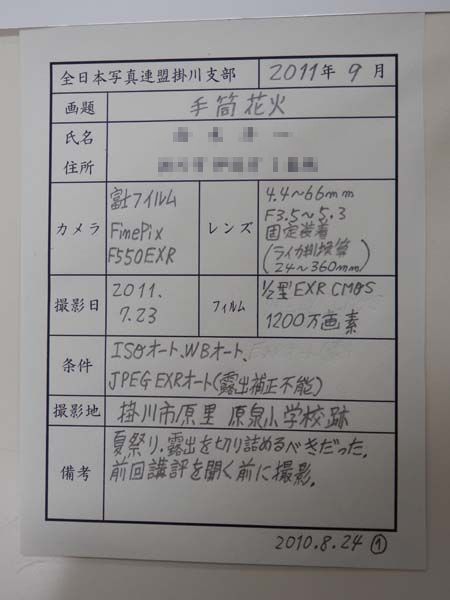 全日本写真連盟掛川支部 2011年 9月
画題 手筒花火
氏名
住所
カメラ 富士フイルム FinePix F550EXR
レンズ 4.4~66mm F3.5~5.3 固定装着 (ライカ判換算 24~360mm)
撮影日 2011. 7.23
フィルム 1/2型 EXR CMOS 1200万画素
条件 ISOオート、WBオート、
JPEG EXRオート(露出補正不能)
撮影地 掛川市原里 原泉小学校跡
備考 夏祭り.露出を切り詰めるべきだった.
前回講評を聞く前に撮影.
2010.8.24 ①